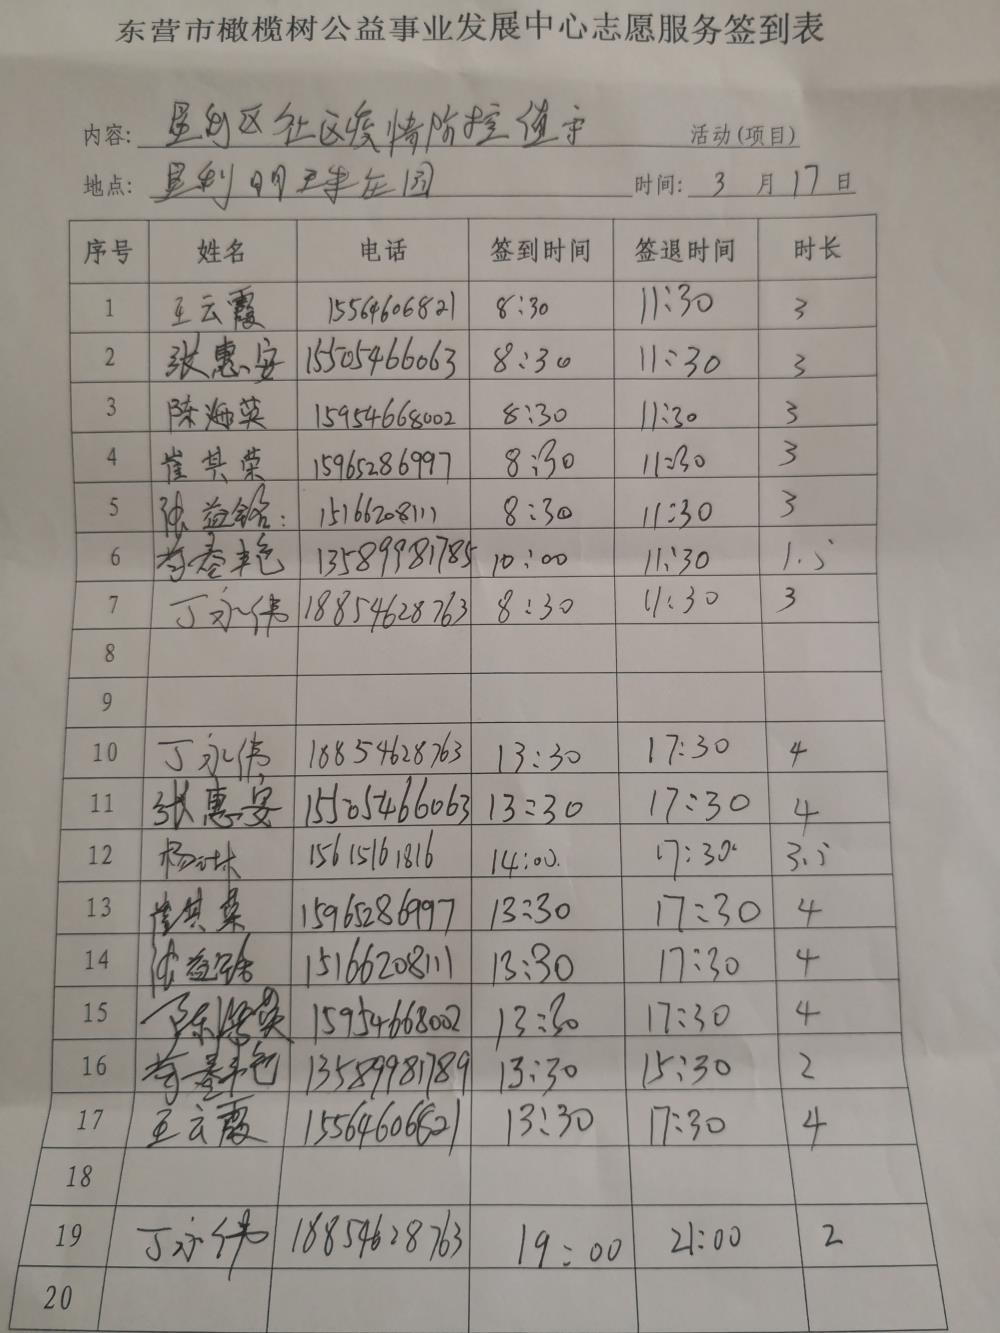 东营市橄榄树公益事业发展中心志愿服务签到表
内容: 垦利区社区疫情防控值守 活动(项目)
地点: 垦利明卫华庄园 时间: 3 月 17 日
序号 姓名 电话 签到时间 签退时间 时长
1 王云霞 15564606821 8:30 11:30 3
2 张惠安 15505466063 8:30 11:30 3
3 陈海英 15954668002 8:30 11:30 3
4 崔其荣 15965286997 8:30 11:30 3
5 张益铭 15166208111 8:30 11:30 3
6 13589981785 10:00 11:30 1.5
7 丁永伟 18854628763 8:30 11:30 3
8
9
10 丁永伟 18854628763 13:30 17:30 4
11 张惠安 15505466063 13:30 17:30 4
12 杨 15615161816 14:00. 17:30 3.5
13 崔其荣 15965286997 13:30 17:30 4
14 张益铭 15166208111 13:30 17:30 4
15 陈海英 15954668002 13:30 17:30 4
16 13589981789 13:30 15:30 2
17 王云霞 15564606821 13:30 17:30 4
18
19 丁永伟 18854628763 19:00 21:00 2
20